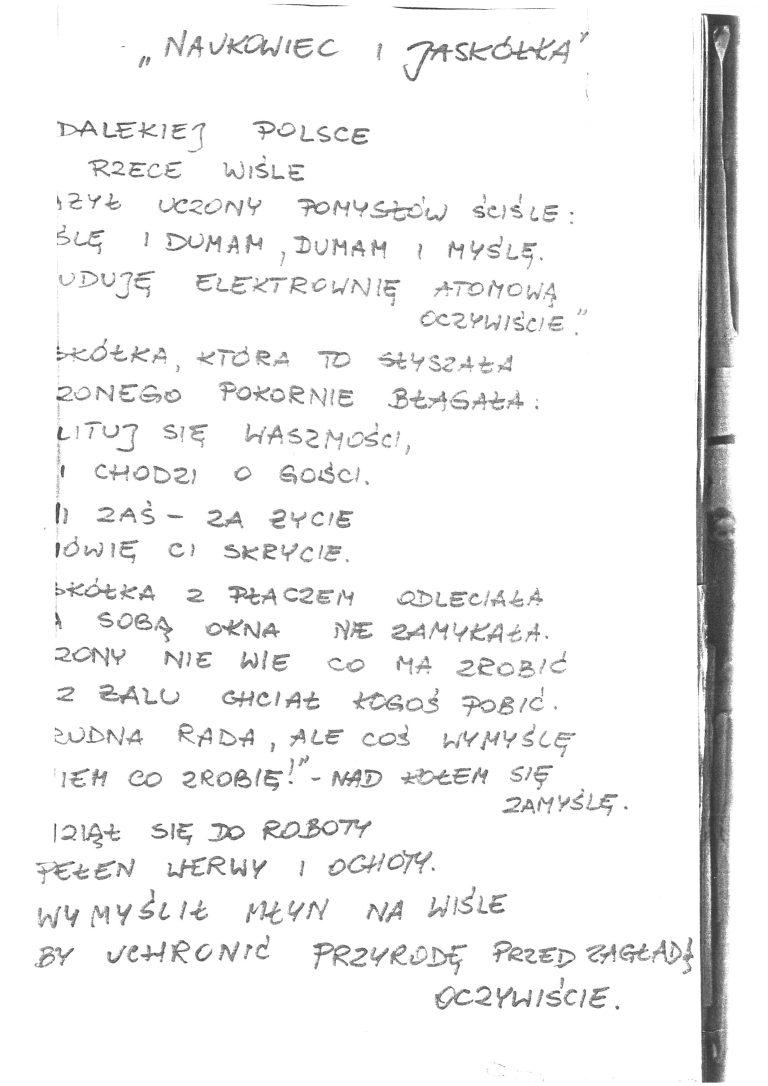 „NAUKOWIEC I JASKÓŁKA"
DALEKIEJ POLSCE
RZECE WIŚLE
UCZONY POMYSŁÓW ŚCIŚLE:
I DUMAM, DUMAM I MYŚLĘ.
UDUJĘ ELEKTROWNIĘ ATOMOWĄ
OCZYWIŚCIE."
SKÓŁKA, KTÓRA TO SŁYSZAŁA
ZONEGO POKORNIE BŁAGAŁA:
LITUJ SIĘ WASZMOŚCI,
CHODZI O GOŚCI.
I ZAŚ - ZA ŻYCIE
ÓWIĘ CI SKRYCIE.
SKÓŁKA Z PŁACZEM ODLECIAŁA
SOBĄ OKNA NIE ZAMYKAŁA.
ZONY NIE WIE CO MA ZROBIĆ
Z ŻALU CHCIAŁ KOGOŚ POBIĆ.
RUDNA RADA, ALE COŚ WYMYŚLĘ
IEM CO ZROBIĘ!" - NAD KOŁEM SIĘ
ZAMYŚLĘ.
DZIĄŁ SIĘ DO ROBOTY
PEŁEN WERWY I OCHOTY.
WYMYŚLIŁ MŁYN NA WIŚLE
BY UCHRONIĆ PRZYRODĘ PRZED ZAGŁADĄ
OCZYWIŚCIE.